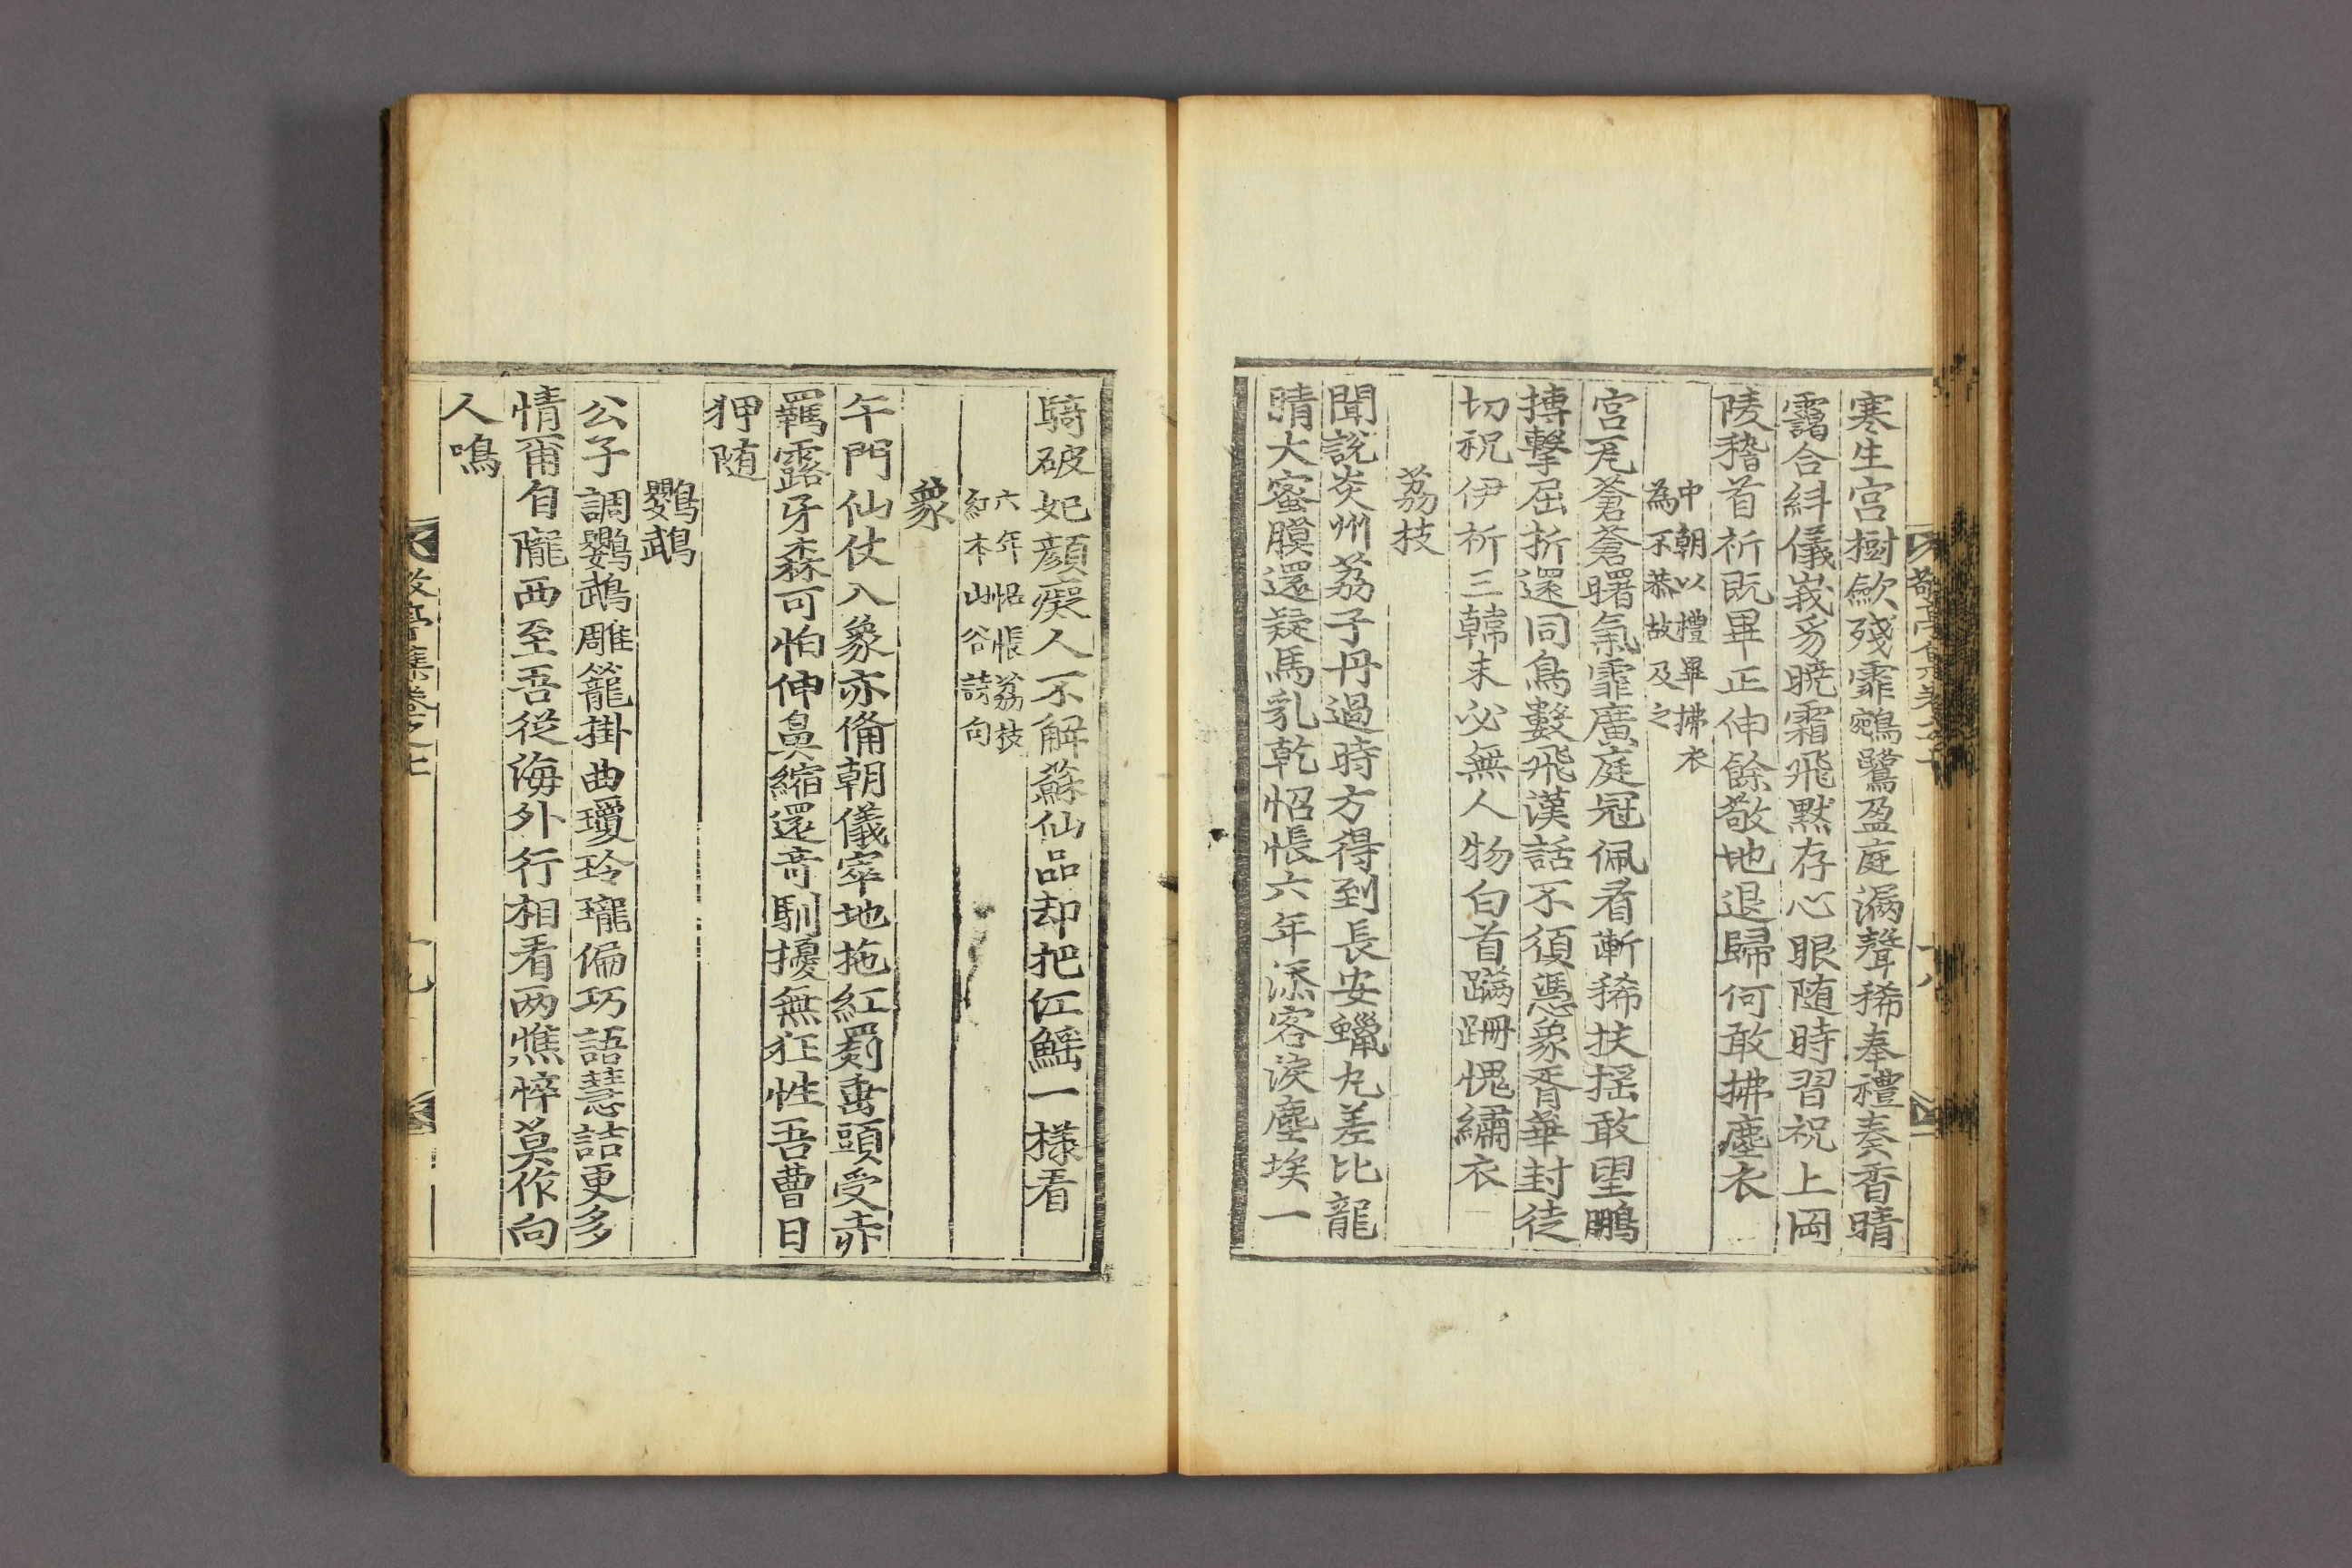 敬亭集卷之七
十八
寒生宮樹歛殘霏鵷鷺盈庭漏聲稀奉禮奏香晴
靄合紏儀峩豸曉霜飛黙存心眼随時習祝上岡
陵稽首祈既畢正伸餘敬地退歸何敢拂塵衣
中朝以禮畢拂衣
為不恭故及之
宮瓦蒼蒼曙氣霏廣庭冠佩看漸稀扶搖敢望鵬
搏擊屈折還同鳥數飛漢話不須憑象胥華封徒
切祝伊祈三韓未必無人物白首蹣跚愧繡衣
荔枝
聞說炎州荔子丹過時方得到長安蠟丸差比龍
睛大蜜膜還疑馬乳乾怊悵六年添客淚塵埃一
騎破妃顏癡人不解蘇仙品却把江鰩一樣看
六年怊悵荔枝
紅本山谷詩句
象
午門仙仗入象亦偹朝儀窣地拖紅罽畨頭受赤
羈露牙森可怕伸鼻縮還竒馴擾無狂性吾曹日
狎随
鸚鵡
公子調鸚鵡雕籠掛曲瓊玲瓏偏巧語慧詰更多
情爾自隴西至吾從海外行相看两憔悴莫作向
人鳴
敬亭集卷之七
十九